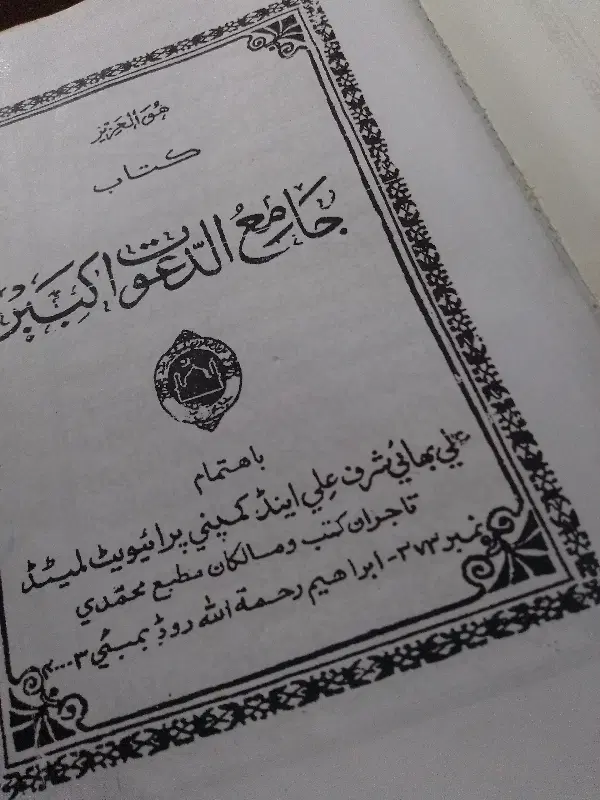 هو العزيز
كتاب
جامع الدّعوات اكبير
باهتمام
علي بھائي شرف علي اينڈ كمپني پرائيويٹ لميٹڈ
تاجران كتب ومالكان مطبع محمّدي
نمبر ۳۷۳- ابراهيم رحمة الله روڈ بمبئي ۴۰۰۰۰۳